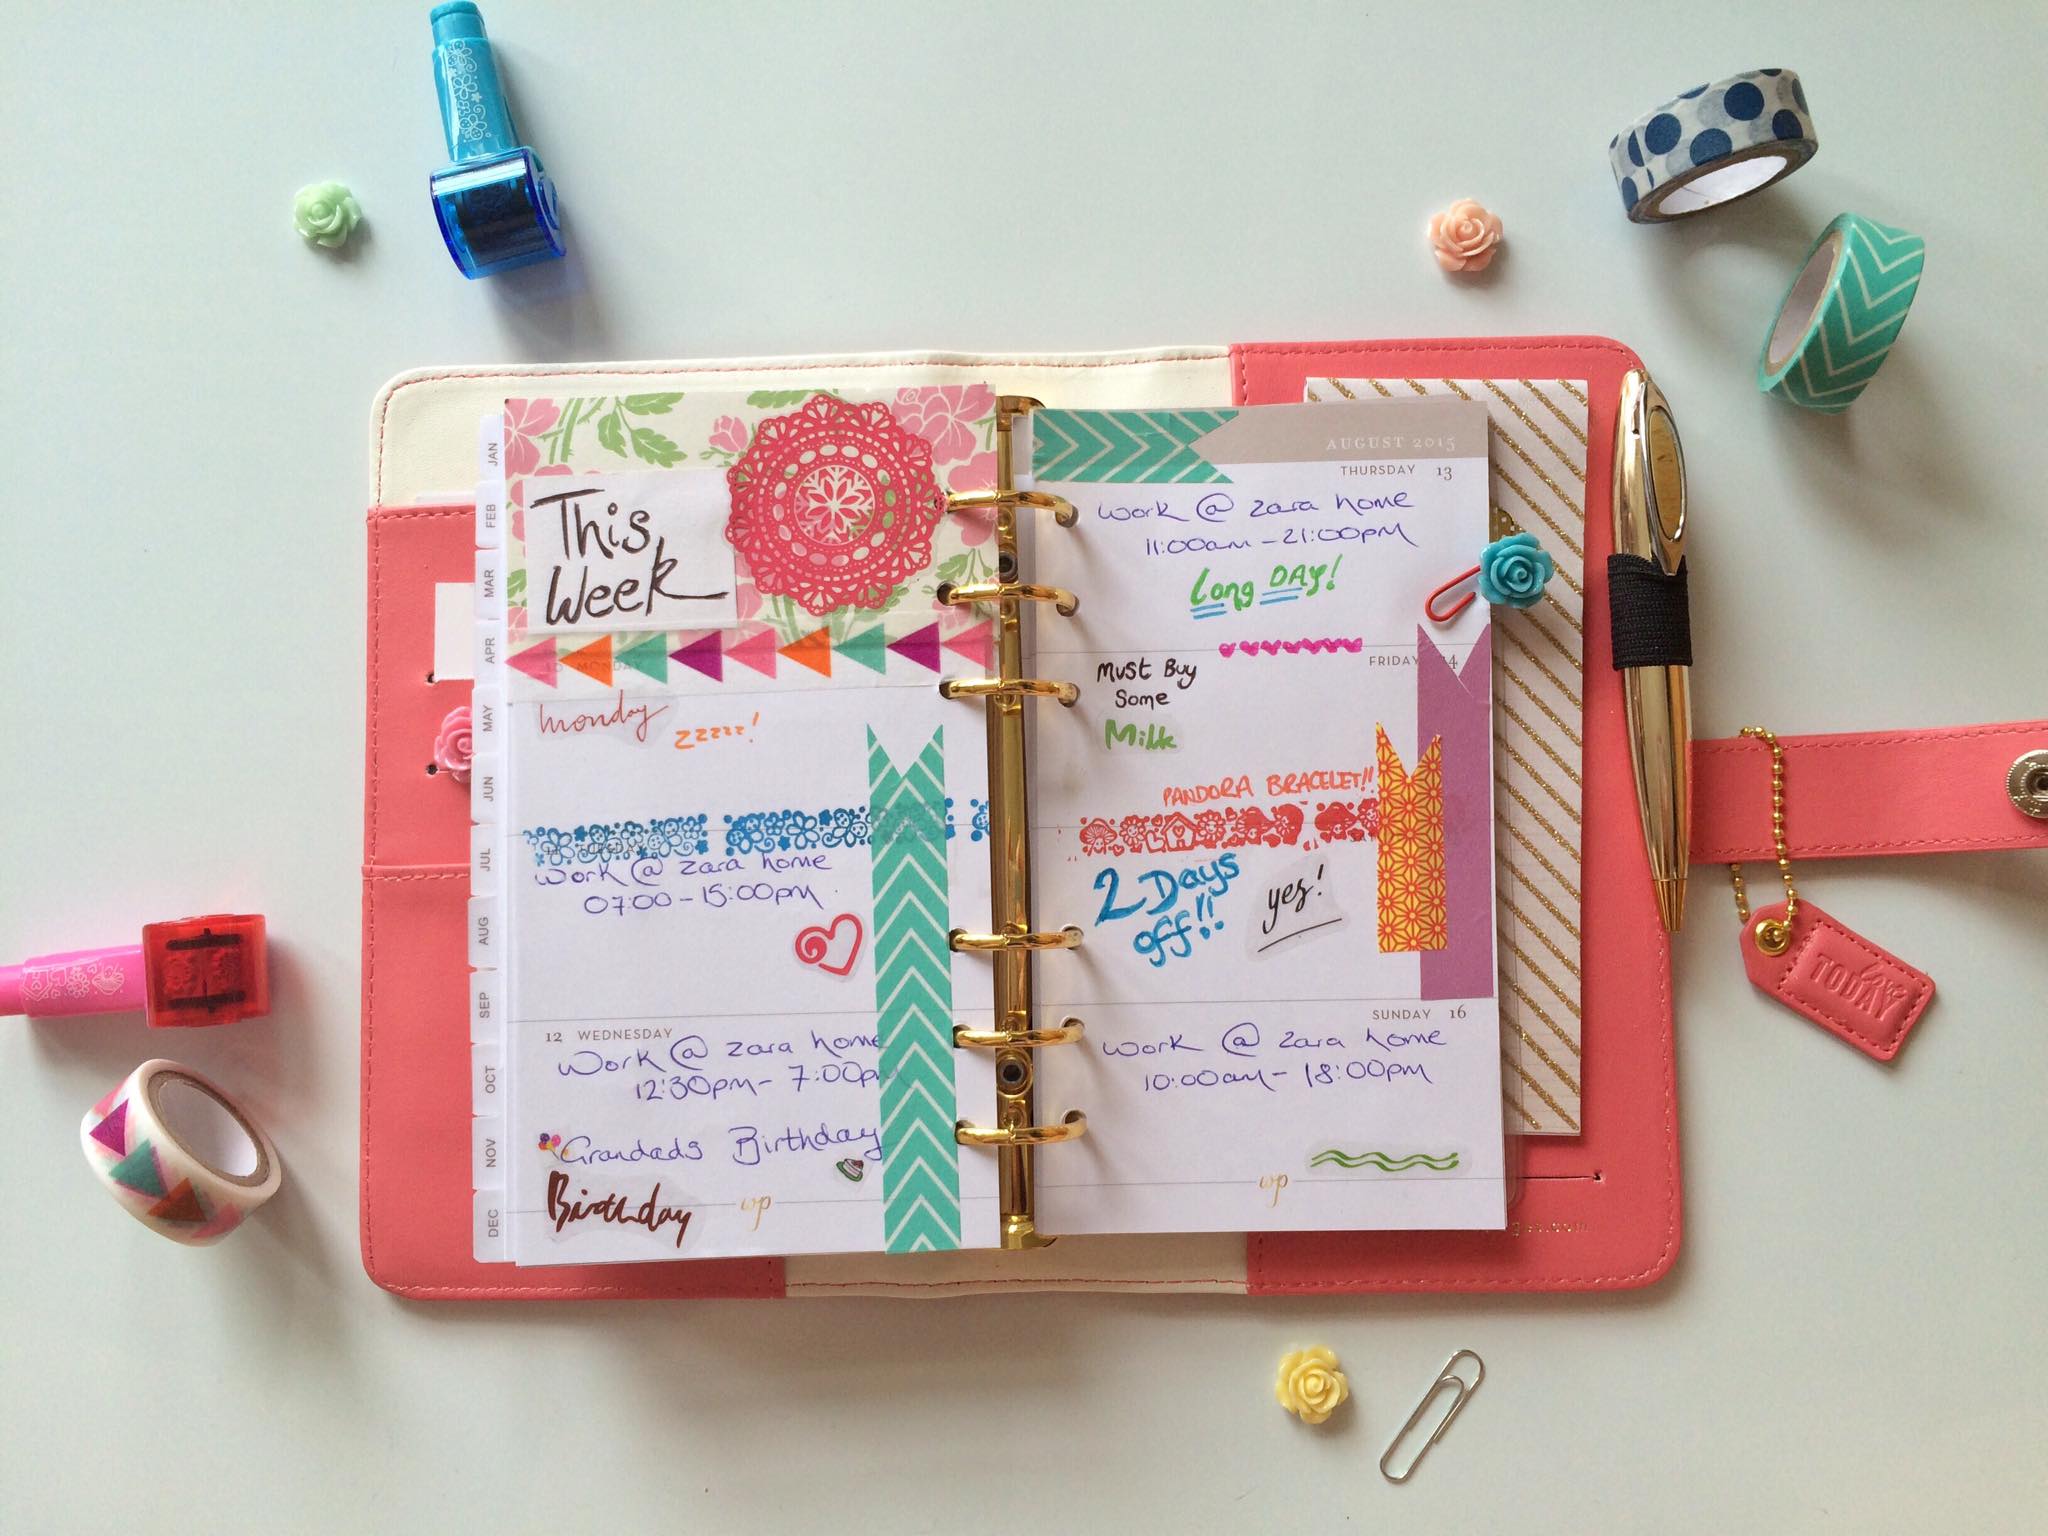 JAN
FEB
MAR
APR
MAY
JUN
JUL
AUG
SEP
OCT
NOV
DEC
This
Week
10 MONDAY
monday
zzzzz!
11 TUESDAY
Work @ zara home
07:00 - 15:00pm
12 WEDNESDAY
Work @ zara home
12:30pm - 7:00pm
Grandads Birthday
Birthday
wp
AUGUST 2015
THURSDAY 13
Work @ zara home
11:00am - 21:00pm
Long DAY!
FRIDAY 14
Must Buy
Some
Milk
PANDORA BRACELET!!
2 Days
off!!
yes!
SUNDAY 16
Work @ zara home
10:00am - 18:00pm
wp
TODAY